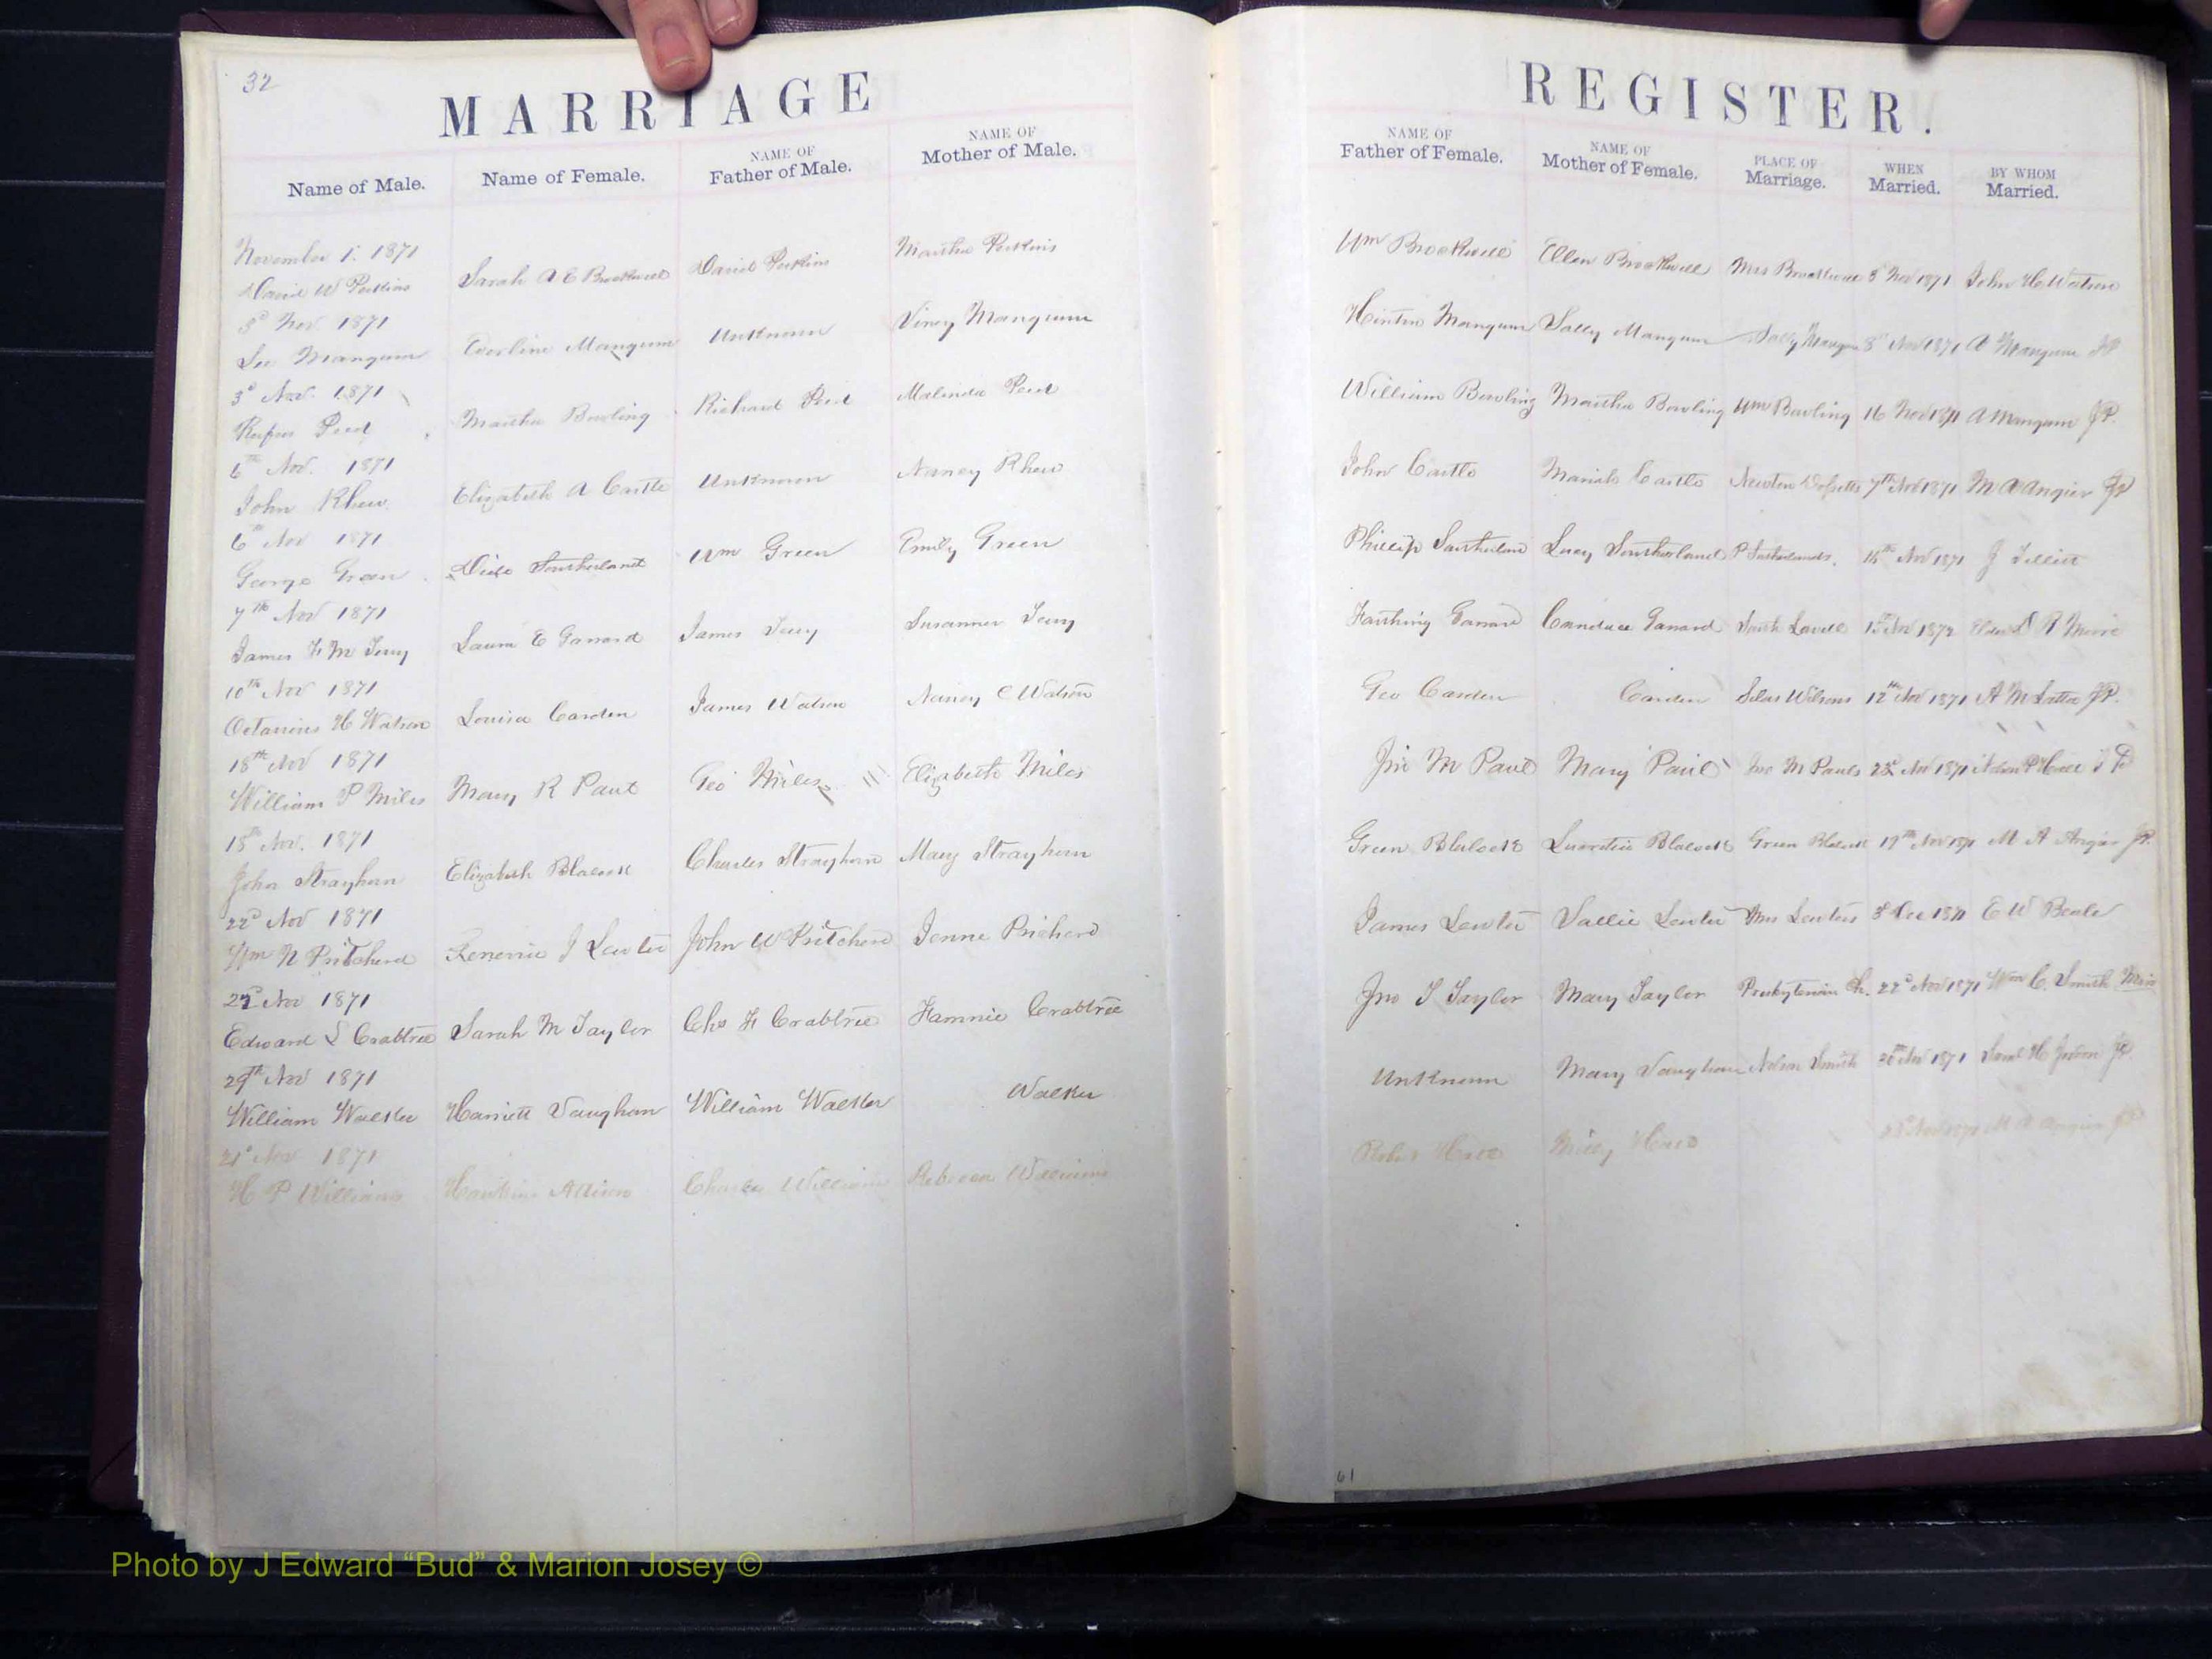 32
MARRIAGE
REGISTER.
Name of Male.
Name of Female.
NAME OF
Father of Male.
NAME OF
Mother of Male.
NAME OF
Father of Female.
NAME OF
Mother of Female.
PLACE OF
Marriage.
WHEN
Married.
BY WHOM
Married.
November 1. 1871
David W Perkins Sarah A E Brockwell David Perkins Martha Perkins Wm Brockwell Ellen Brockwell Mrs Brockwell Nov 1871 John H Watson
3d Nov. 1871
Mangum Everline Mangum Unknown Viney Mangum Hinton Mangum Sally Mangum Sally Mangum Nov 1871 A Mangum JP
3d Nov. 1871
Rufus Peed Martha Bowling Richard Peed Malinda Peed William Bowling Martha Bowling Wm Bowling 16 Nov 1871 A Mangum JP.
6th Nov. 1871
John Rhew. Elizabeth A Castle Unknown Nancy Rhew John Castle Mariah Castle Newton 7th Nov 1871 M A Angier JP
6th Nov 1871
George Green Southerland Wm Green Emily Green Phillip Southerland Lucy Southerland P Southerlands. Nov 1871 J Tilliett
7th Nov 1871
James F M Terry Laura E Garrard James Terry Susanner Terry Farthing Garrard Candace Garrard 1872 Elder
10th Nov 1871
Octavious H Watson Louisa Carden James Watson Nancy C Watson Geo Carden Carden Silas Wilsons 12th Nov 1871 A M Latta JP.
18th Nov 1871
William P Miles Mary R Paul Geo Miles Elizabeth Miles Jno M Paul Mary Paul Jno M Pauls Nov 1871 Nelson P Hall JP
18th Nov. 1871
John Strayhorn Elizabeth Blalock Charles Strayhorn Mary Strayhorn Green Blalock Lucretia Blalock Green Blalock 19th Nov 1871 M A Angier JP.
22d Nov 1871
Wm N Pritcherd J Lewter John W Pritcherd Jenne Pricherd James Lewter Sallie Lewter Mrs Lewters Dec 1871 E W Beale
22d Nov 1871
Edward S Crabtree Sarah M Taylor Chs F Crabtree Fannie Crabtree Jno S Taylor Mary Taylor Presbyterian Ch. 22d Nov 1871 Wm C. Smith Min
29th Nov 1871
William Walker Harriett Vaughan William Walker Walker Unknown Mary Vaughan Nelson Smith 30th Nov 1871 JP.
21st Nov 1871
H P Williams Charles Williams Rebecca Williams Milly Nov 1871 M A Angier JP
61
Photo by J Edward “Bud” & Marion Josey ©